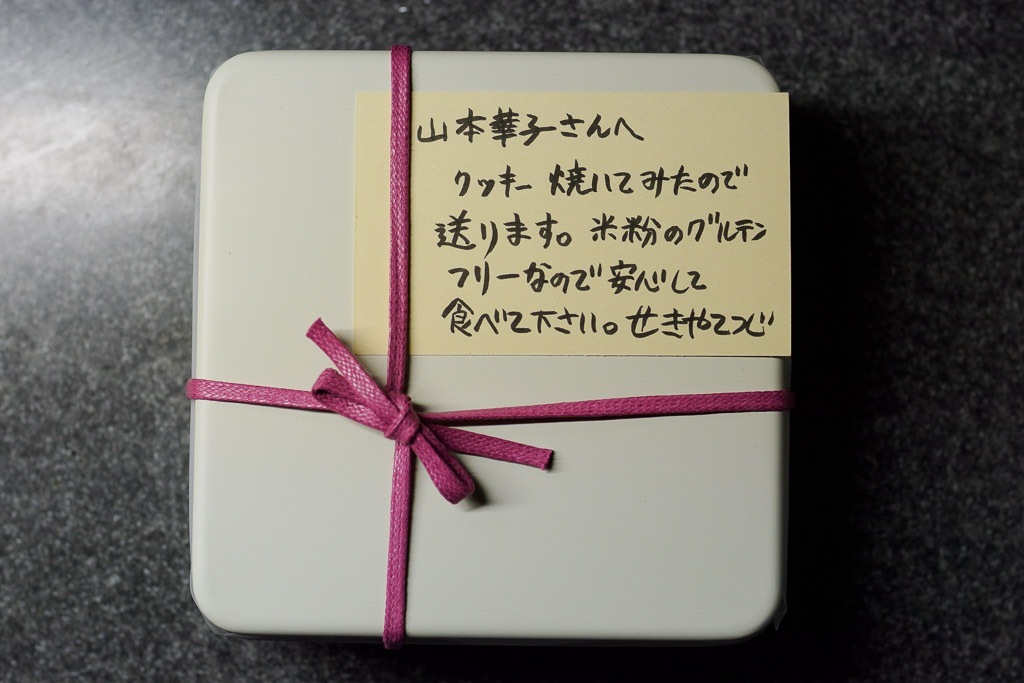 山本華子さんへ
クッキー 焼いてみたので
送ります。米粉のグルテン
フリーなので安心して
食べて下さい。せきやてつじ